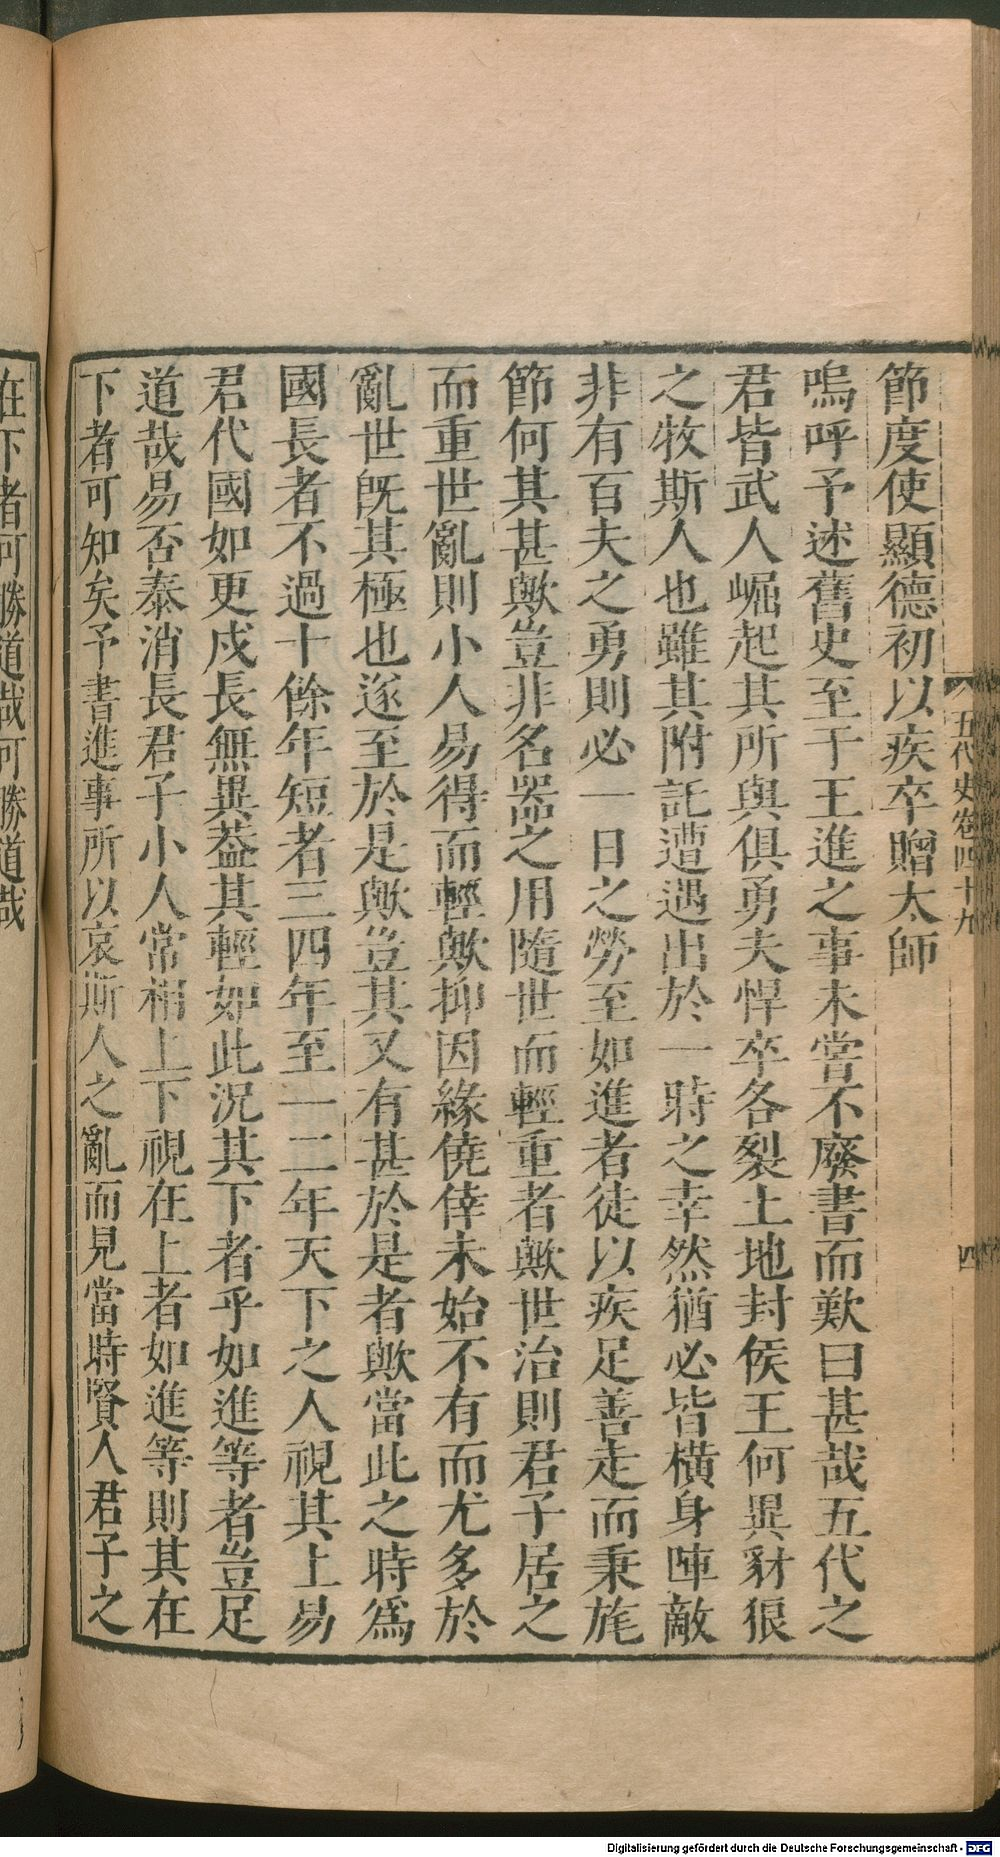 五代史卷四十九
四
節度使顯德初以疾卒贈太師
嗚呼予述舊史至于王進之事未嘗不廢書而歎曰甚哉五代之
君皆武人崛起其所與俱勇夫悍卒各裂土地封侯王何異豺狼
之牧斯人也雖其附託遭遇出於一時之幸然猶必皆橫身陣敵
非有百夫之勇則必一日之勞至如進者徒以疾足善走而秉旄
節何其甚歟豈非名器之用隨世而輕重者歟世治則君子居之
而重世亂則小人易得而輕歟抑因緣僥倖未始不有而尤多於
亂世旣其極也遂至於是歟豈其又有甚於是者歟當此之時爲
國長者不過十餘年短者三四年至一二年天下之人視其上易
君代國如更戍長無異葢其輕如此況其下者乎如進等者豈足
道哉易否泰消長君子小人常相上下視在上者如進等則其在
下者可知矣予書進事所以哀斯人之亂而見當時賢人君子之
在下者可勝道哉可勝道哉
Digitalisierung gefördert durch die Deutsche Forschungsgemeinschaft - DFG